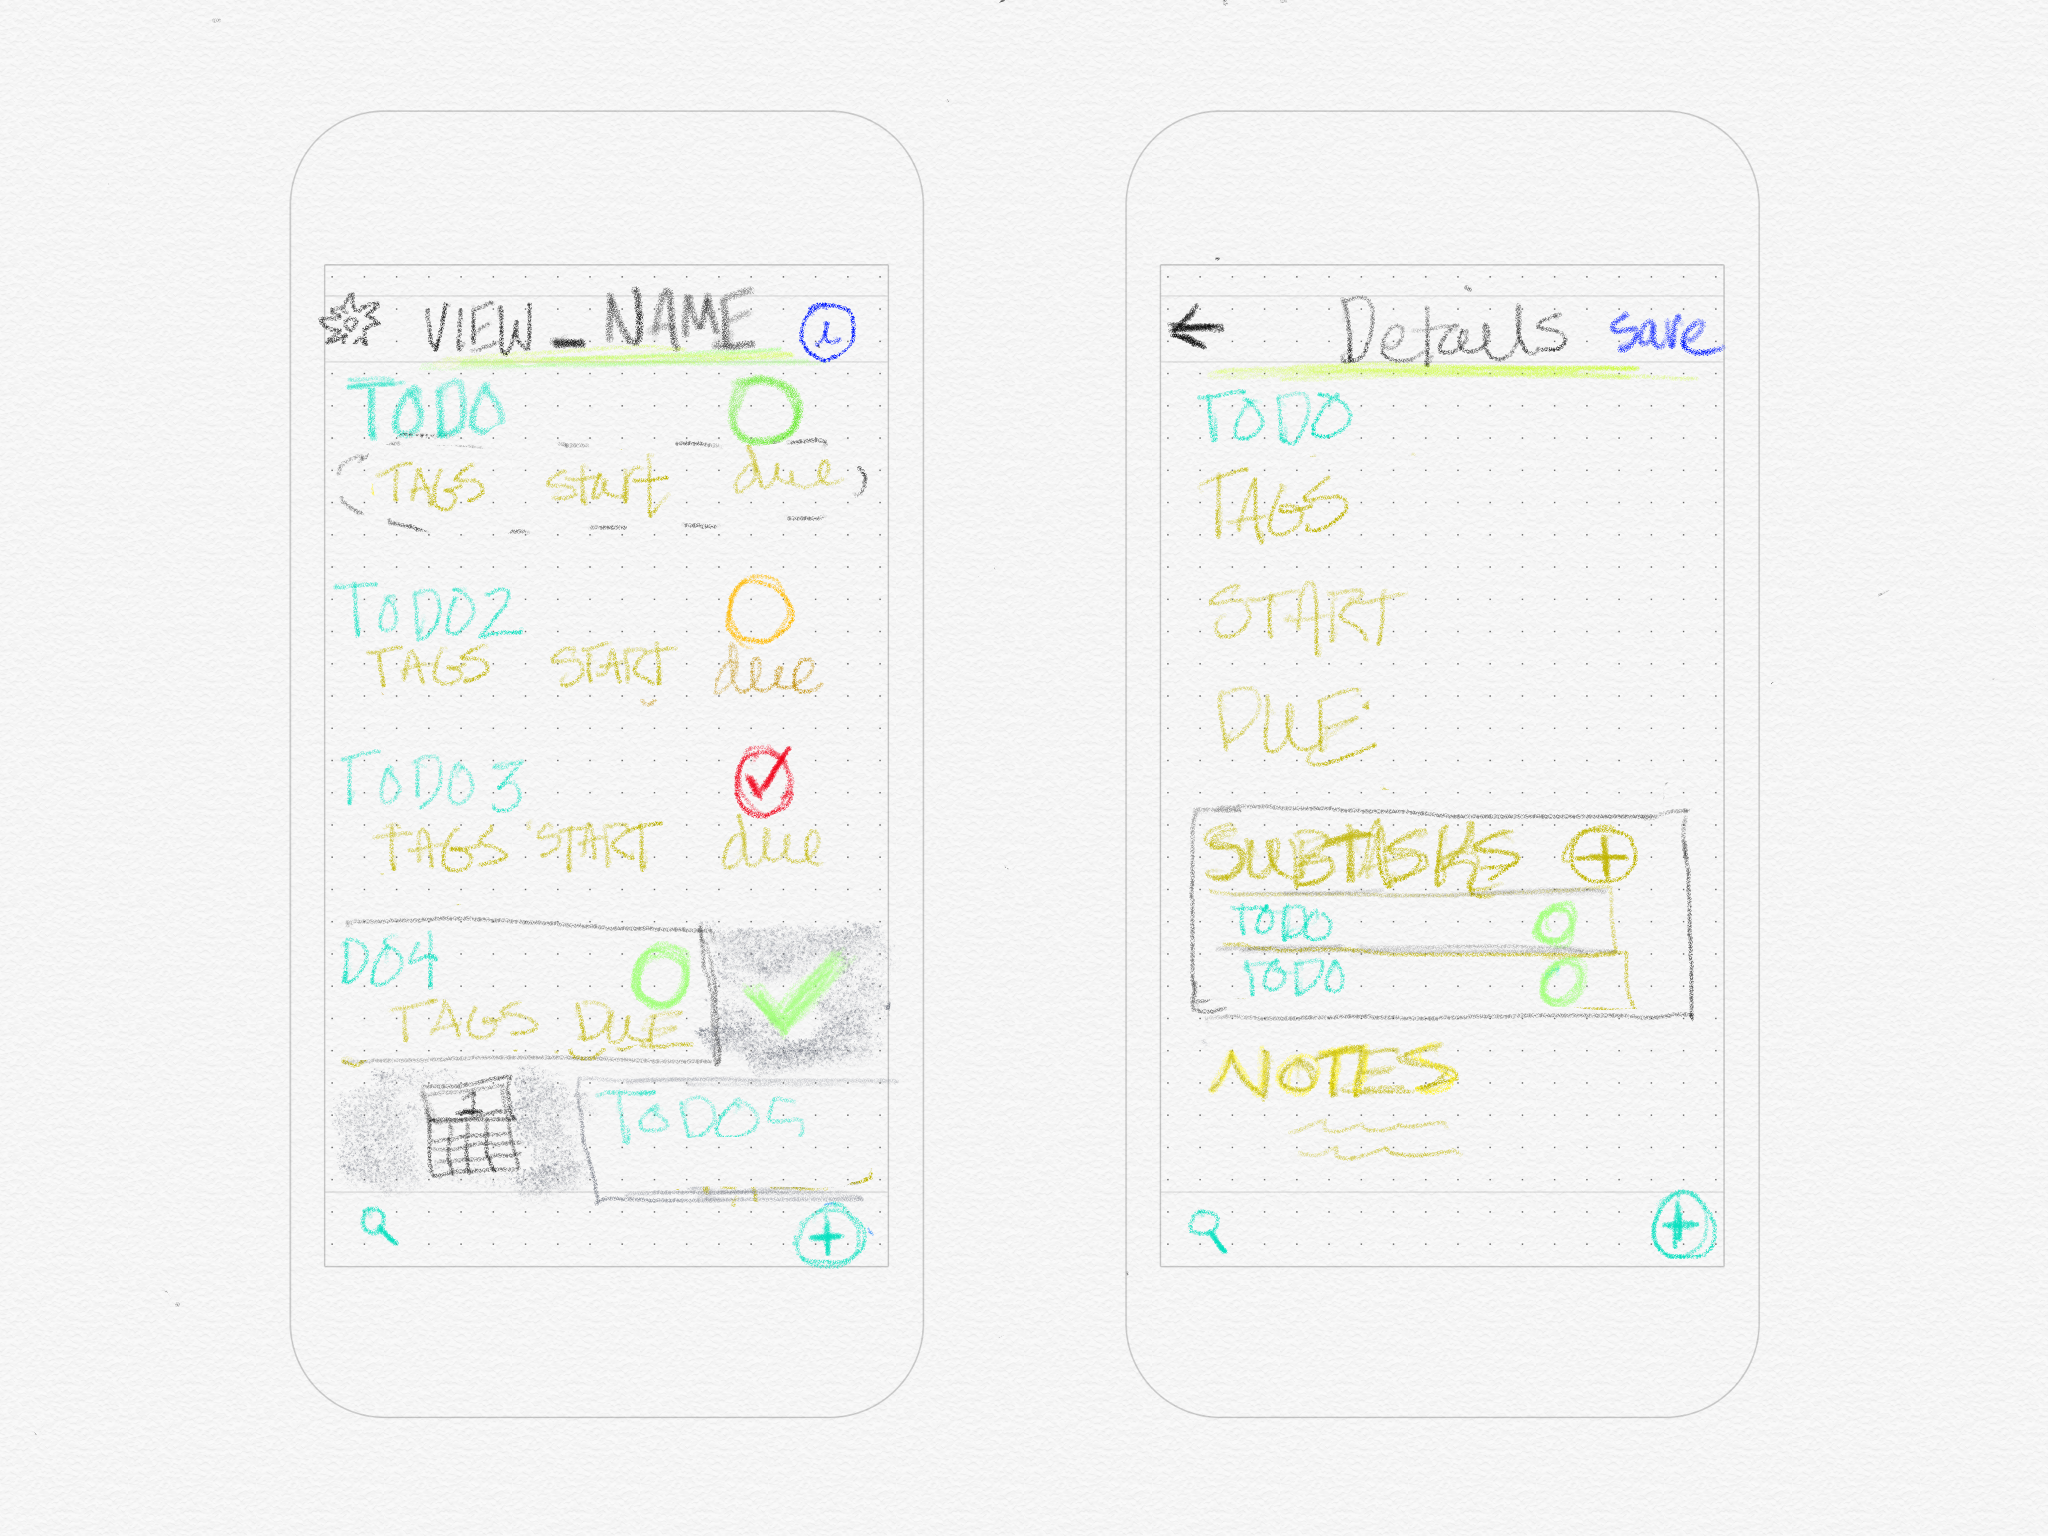 VIEW_NAME i
TODO
TAGS start due
TODO2
TAGS START due
TODO3
TAGS START due
DO4
TAGS DUE
TODO5
Details save
TODO
TAGS
START
DUE
SUBTASKS +
TODO
TODO
NOTES